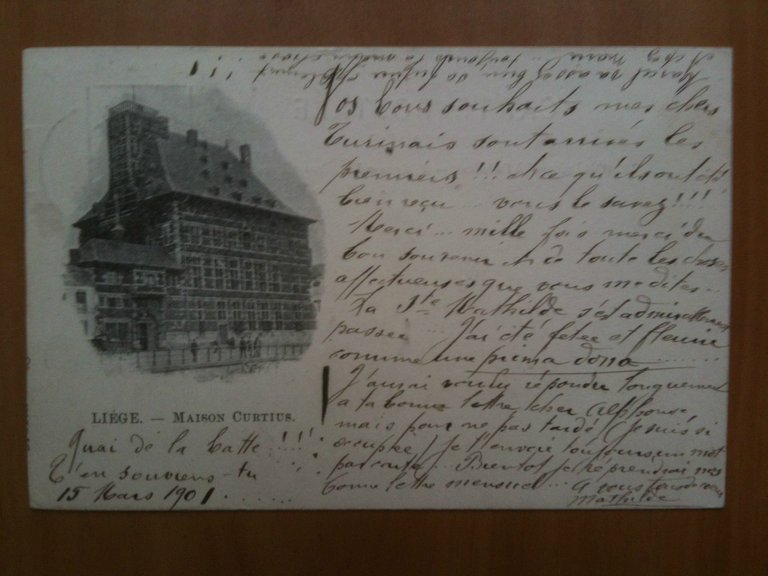 Vos bons souhaits mes chers
Turinais sont arrivés les
premiers !!! Ce qu'ils ont été
bien reçu ... vous le savez !!!!
Merci ... mille fois merci du
bon souvenir et de toute les choses
affectueuses que vous me dites.
La Ste Mathilde s'est admirablement
passée ... J'ai été fêtée et fleurie
comme une prima dona ......
J'aurai voulu répondre longuement
à ta bonne lettre, cher Alphonse
mais pour ne pas tarder (je suis si
occupée) je t'envoie toujours un mot
par carte. Bientôt je reprendrai mes
bonne lettre mensuel ... à vous
Mathilde
LIÉGE. — MAISON CURTIUS.
Quai de la Batte !!!!
T'en souviens-tu
15 Mars 1901 ......